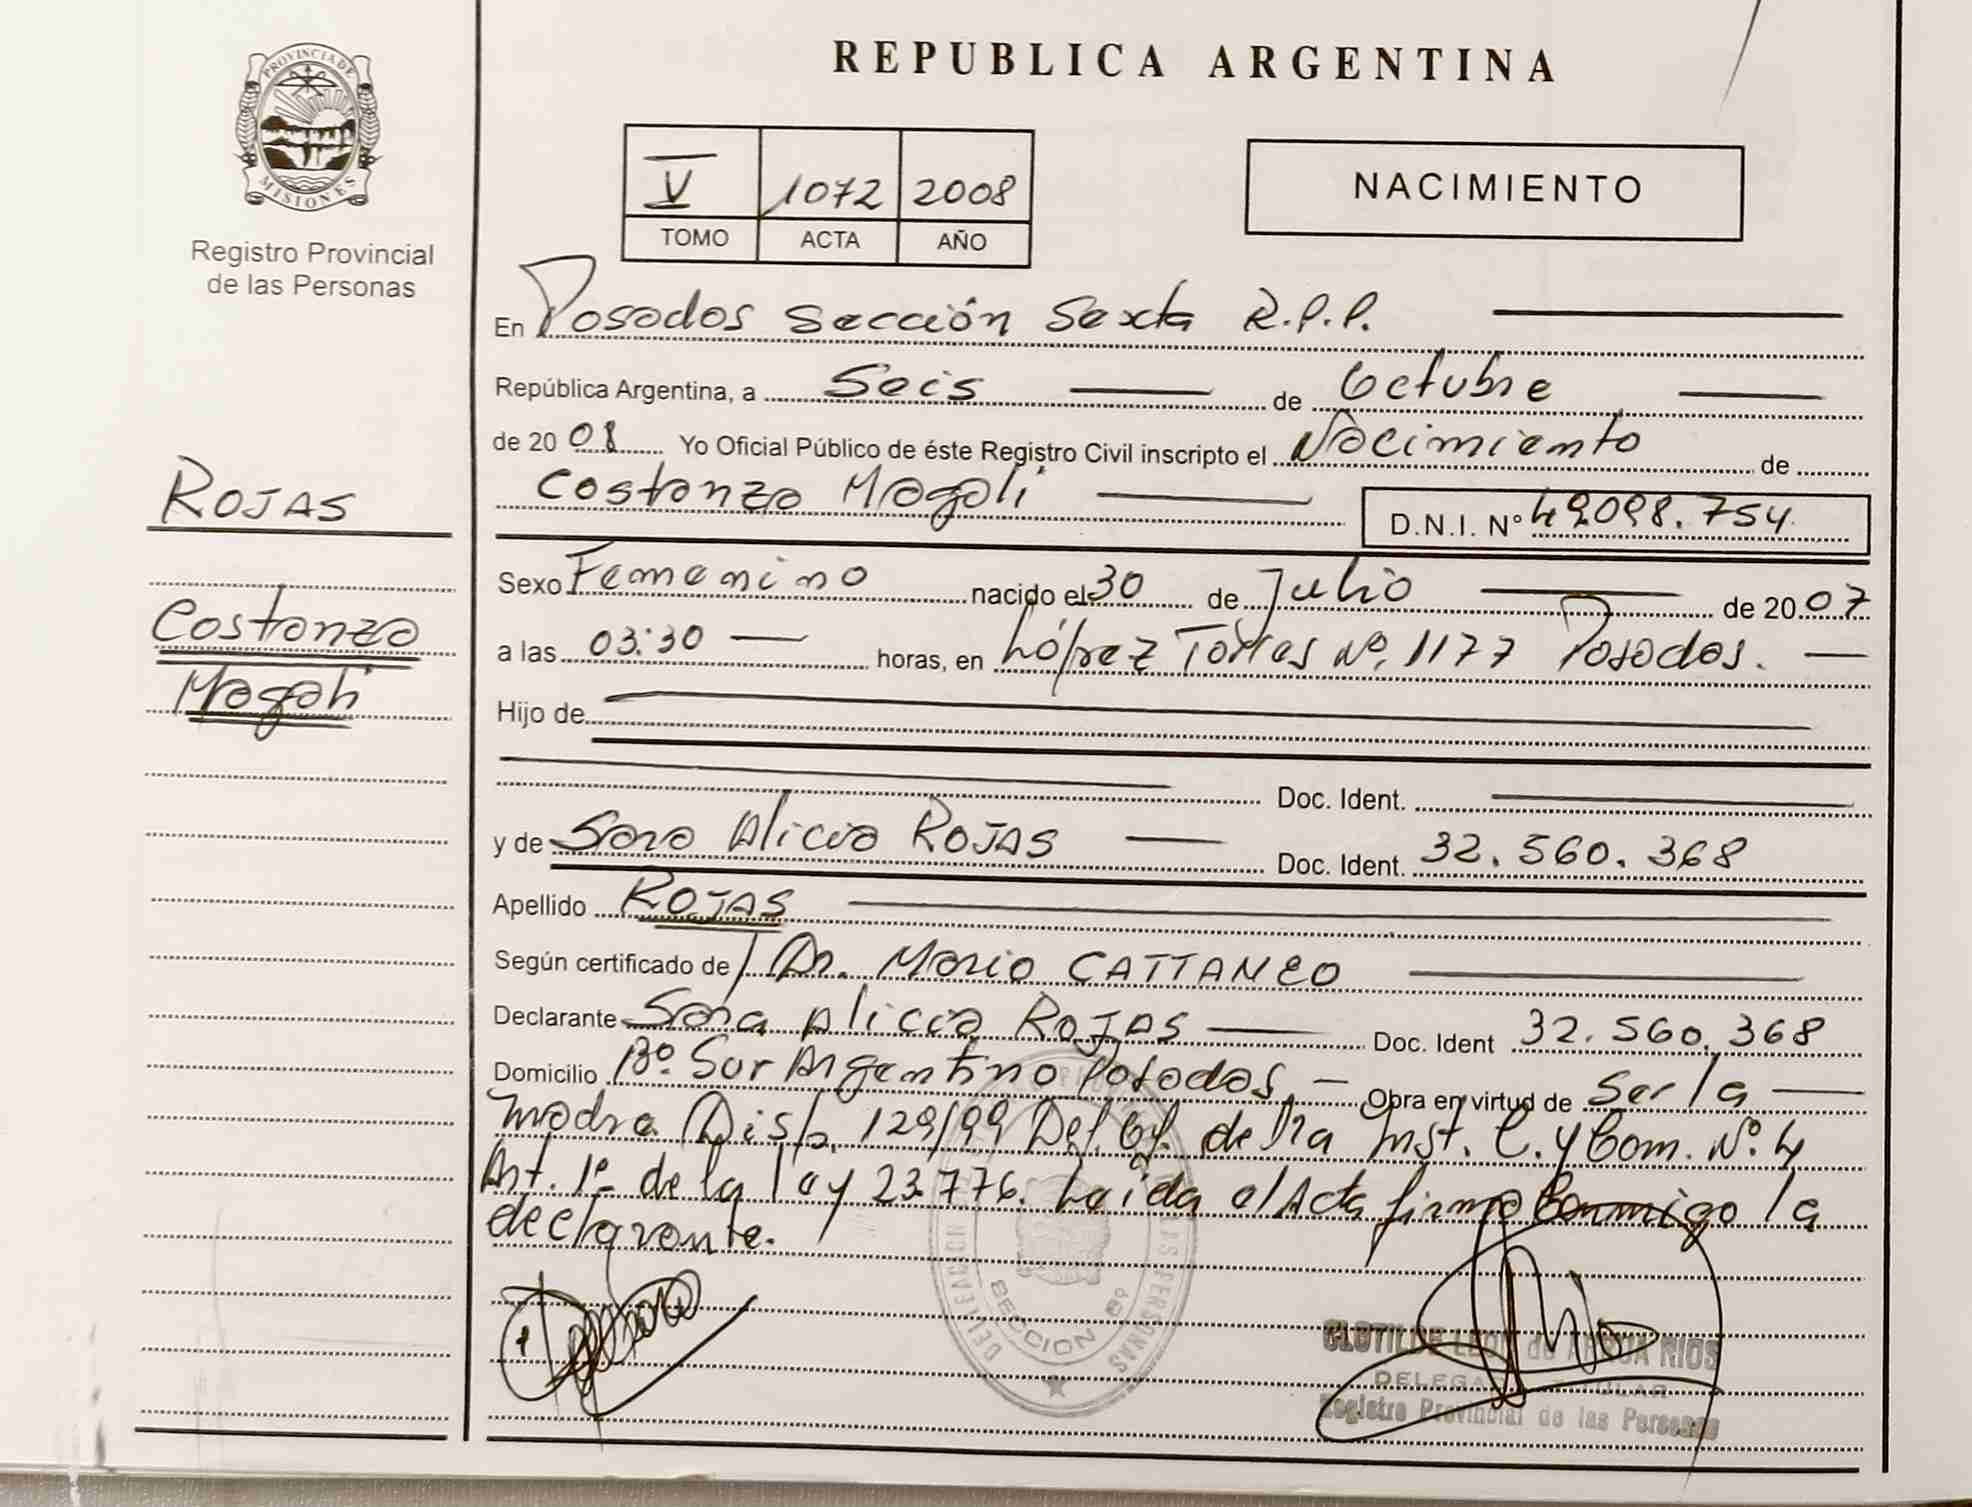 PROVINCIA DE
MISIONES
Registro Provincial
de las Personas
ROJAS
Costanza
Magali
REPUBLICA ARGENTINA
V 1072 2008
TOMO ACTA AÑO
NACIMIENTO
En Posadas Sección Sexta R.P.P.
República Argentina, a Seis de Octubre
de 2008 Yo Oficial Público de éste Registro Civil inscripto el Nacimiento de
Costanza Magali D.N.I. Nº 49.098.754
Sexo Femenino nacido el 30 de Julio de 2007
a las 03:30 horas, en López Torres Nº. 1177 Posadas.
Hijo de
Doc. Ident.
y de Sara Alicia ROJAS Doc. Ident. 32.560.368
Apellido ROJAS
Según certificado de Dr. Mario CATTANEO
Declarante Sara Alicia ROJAS Doc. Ident 32.560.368
Domicilio Bº. Sur Argentino Posadas Obra en virtud de Ser la
madre Disp. 129/99 Def. Of. de 1ra Inst. C. y Com. Nº. 4
Art. 1º de la ley 23.776. Leída el Acta firma Conmigo la
declarante.
SECCION 6º
CLOTILDE LEON de RIOS
DELEGADA TITULAR
Registro Provincial de las Personas